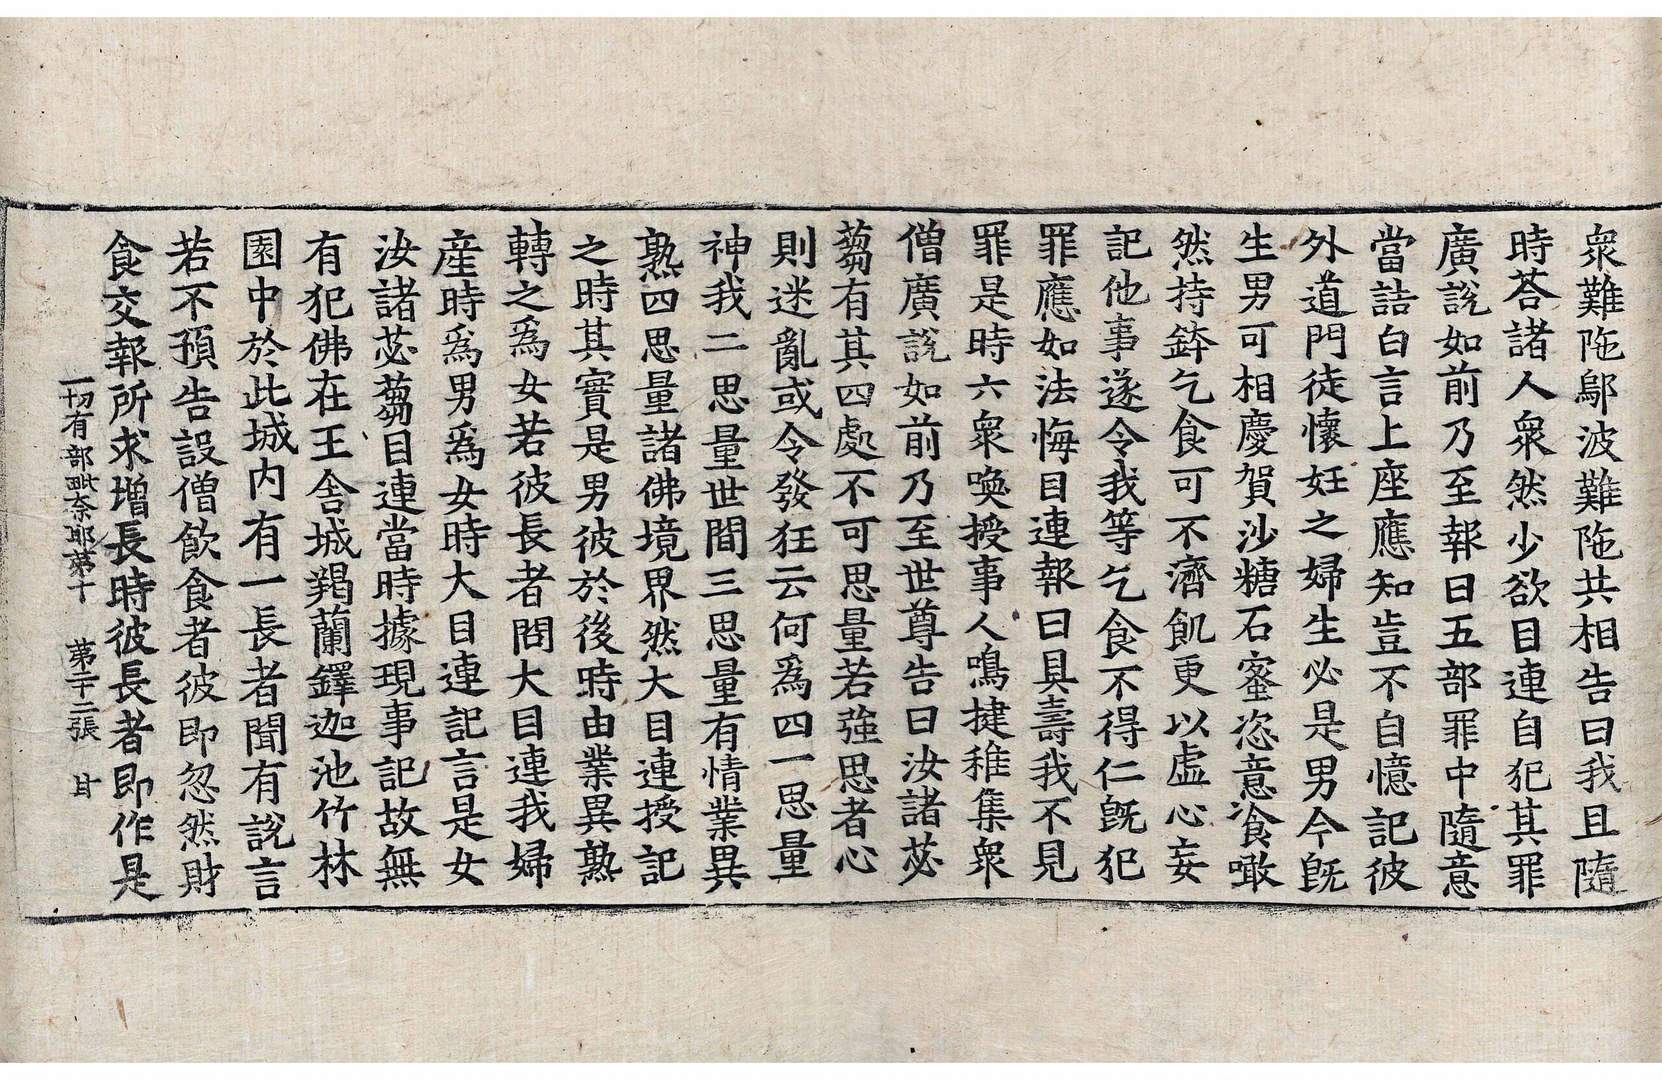 衆難陁鄔波難陁共相告曰我且隨
時荅諸人衆然少欲目連自犯其罪
廣說如前乃至報曰五部罪中隨意
當詰白言上座應知豈不自憶記彼
外道門徒懷妊之婦生必是男今旣
生男可相慶賀沙糖石蜜恣意飡噉
然持鉢乞食可不濟飢更以虛心妄
記他事遂令我等乞食不得仁旣犯
罪應如法悔目連報曰具壽我不見
罪是時六衆喚授事人鳴揵稚集衆
僧廣說如前乃至世尊告曰汝諸苾
蒭有其四處不可思量若強思者心
則迷亂或令發狂云何爲四一思量
神我二思量世間三思量有情業異
熟四思量諸佛境界然大目連授記
之時其實是男彼於後時由業異熟
轉之爲女若彼長者問大目連我婦
産時爲男爲女時大目連記言是女
汝諸苾蒭目連當時據現事記故無
有犯佛在王舍城羯蘭鐸迦池竹林
園中於此城内有一長者聞有說言
若不預告設僧飮食者彼即忽然財
食交報所求增長時彼長者即作是
一切有部毗奈耶第十 第二十二張 甘